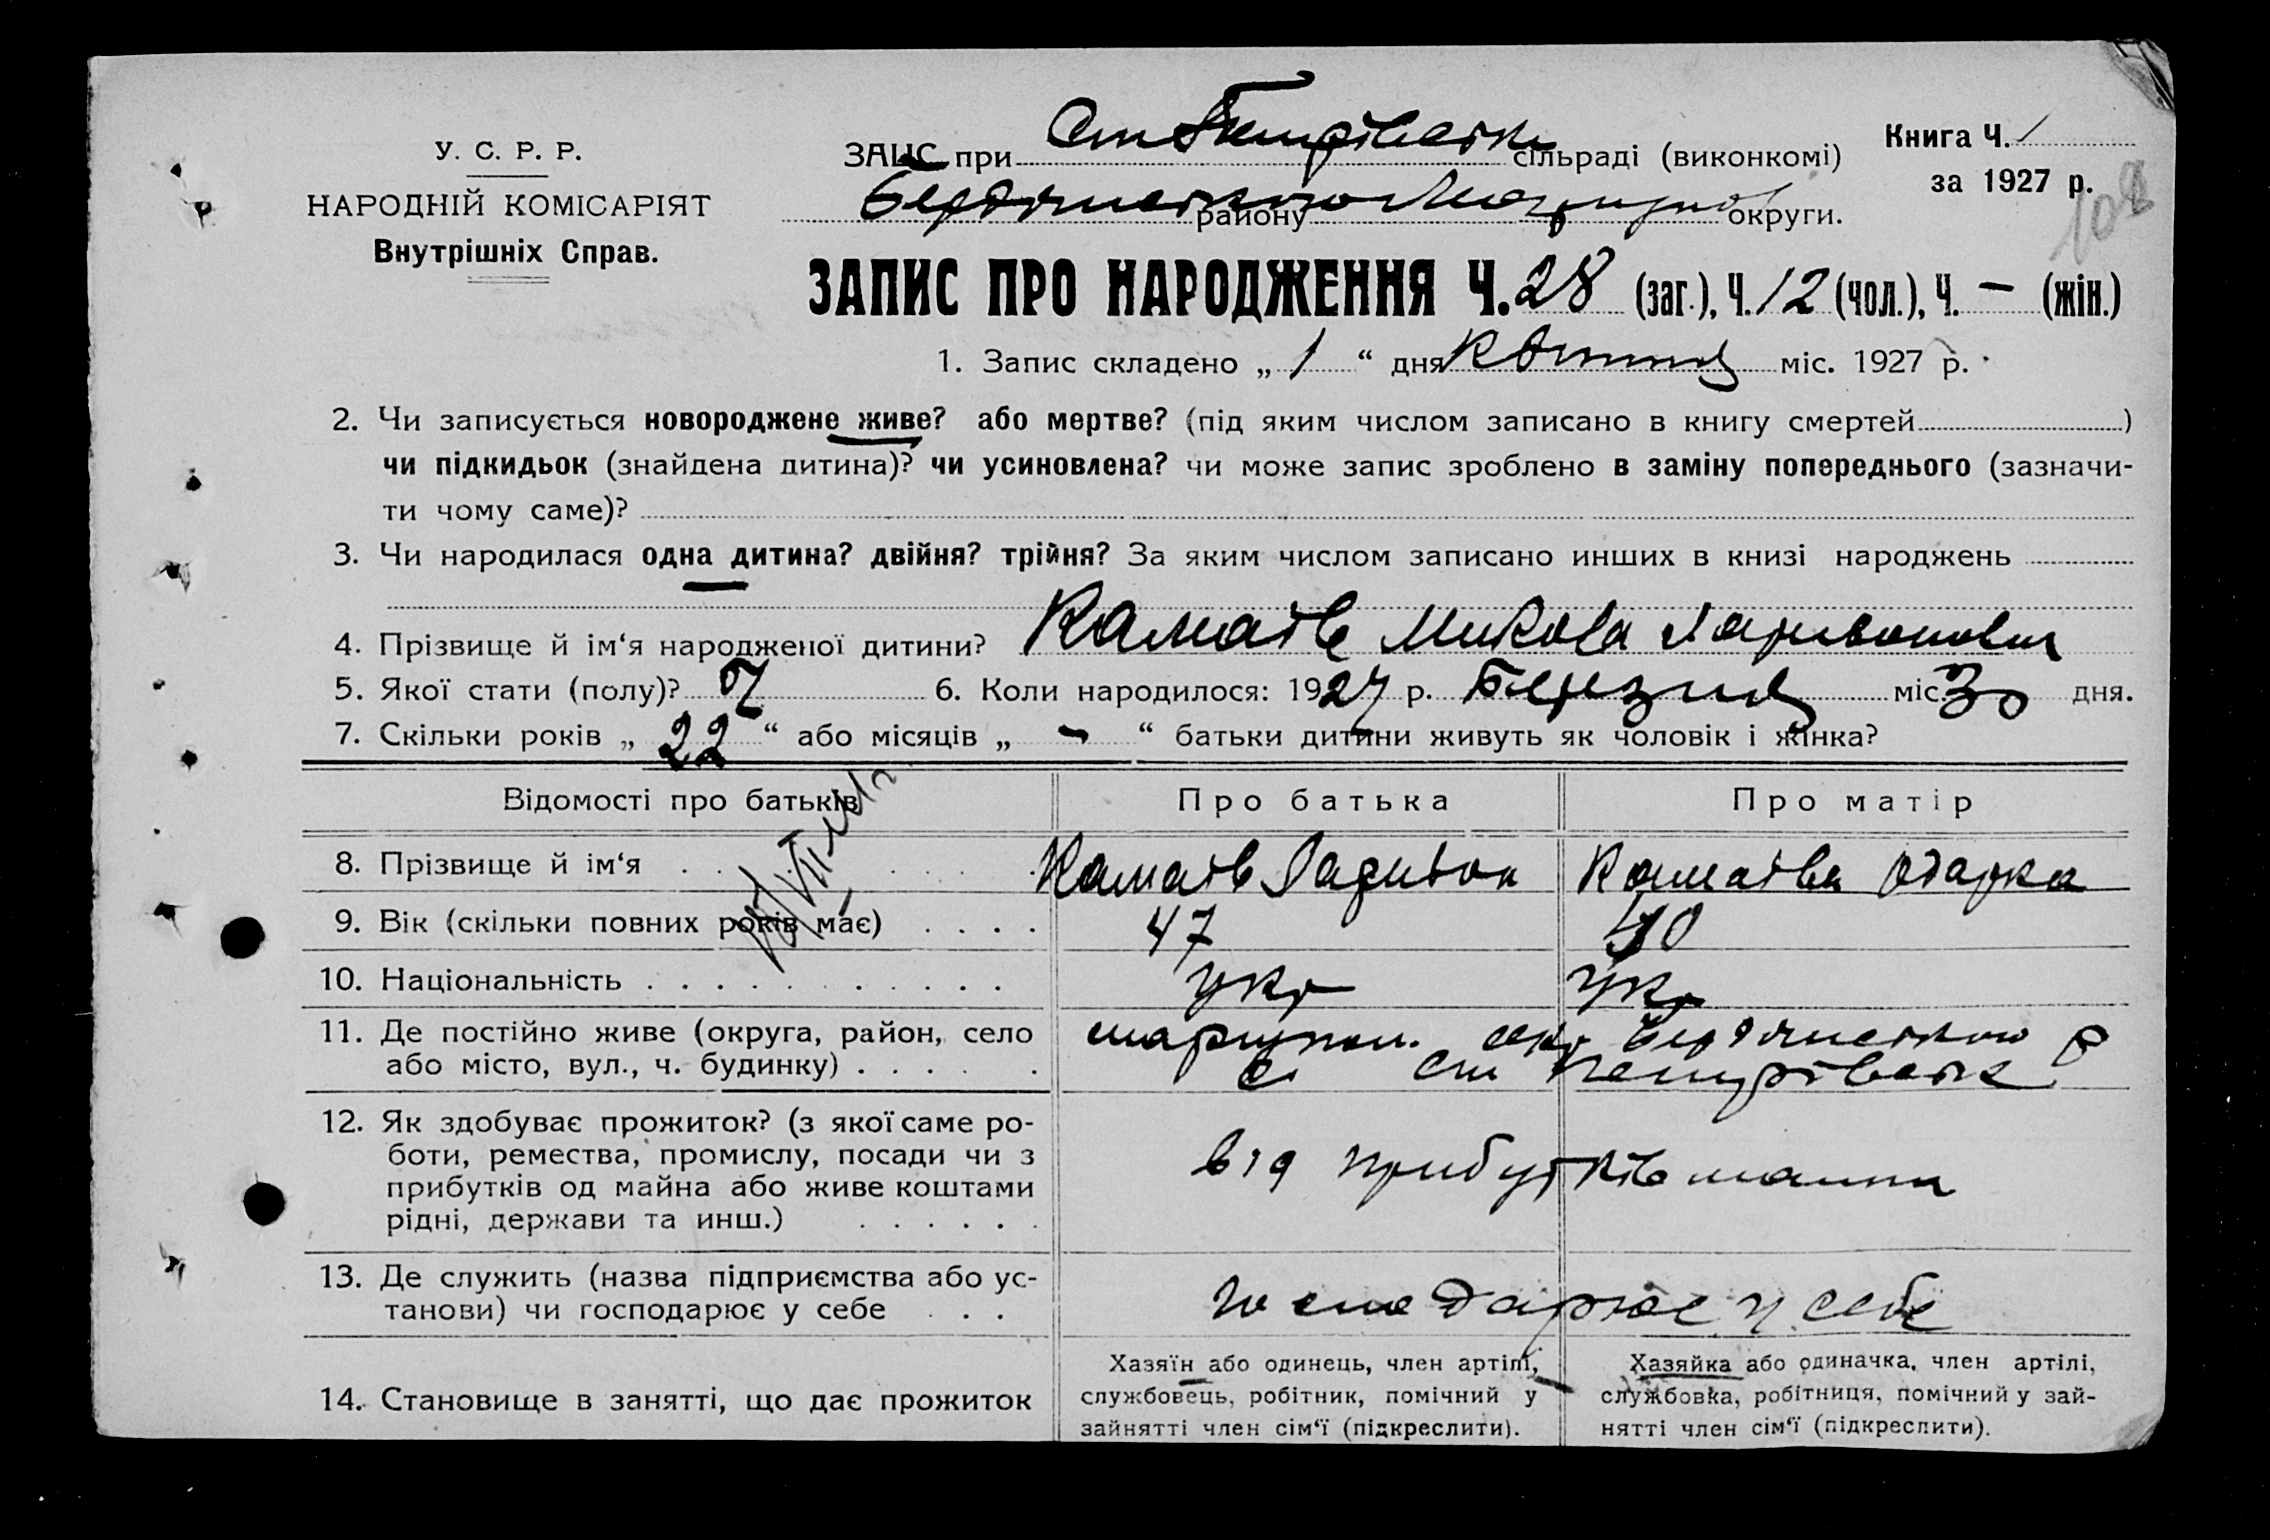 У. С. Р. Р.
НАРОДНІЙ КОМІСАРІЯТ
Внутрішніх Справ.
ЗАЦС при Ст Петрівськ сільраді (виконкомі)
Бердянського району Маріупол округи.
Книга Ч. 1
за 1927 р.
108
ЗАПИС ПРО НАРОДЖЕННЯ Ч. 28 (заг.), Ч. 12 (чол.), Ч. — (жін.)
1. Запис складено „ 1 “ дня Квітня міс. 1927 р.
2. Чи записується новороджене живе? або мертве? (під яким числом записано в книгу смертей )
чи підкидьок (знайдена дитина)? чи усиновлена? чи може запис зроблено в заміну попереднього (зазначи-
ти чому саме)?
3. Чи народилася одна дитина? двійня? трійня? За яким числом записано инших в книзі народжень
4. Прізвище й ім‘я народженої дитини? Камаів Микола Ларивонович
5. Якої стати (полу)? Ч 6. Коли народилося: 1927 р. Березня міс. 30 дня.
7. Скільки років „ 22 “ або місяців „ — “ батьки дитини живуть як чоловік і жінка?
Відомості про батьків Про батька Про матір
8. Прізвище й ім‘я Камаів Ларивон Камаіва Одарка
9. Вік (скільки повних років має) 47 40
10. Національність укр укр
11. Де постійно живе (округа, район, село Маріупол. окр Бердянського Р
або місто, вул., ч. будинку) с. Ст Петрівськ
12. Як здобуває прожиток? (з якої саме ро-
боти, ремества, промислу, посади чи з від прибутків майна
прибутків од майна або живе коштами
рідні, держави та инш.)
13. Де служить (назва підприємства або ус-
танови) чи господарює у себе господарює у себе
14. Становище в занятті, що дає прожиток
Хазяїн або одинець, член артілі,
службовець, робітник, помічний у
зайнятті член сім‘ї (підкреслити).
Хазяйка або одиначка, член артілі,
службовка, робітниця, помічний у зай-
нятті член сім‘ї (підкреслити).